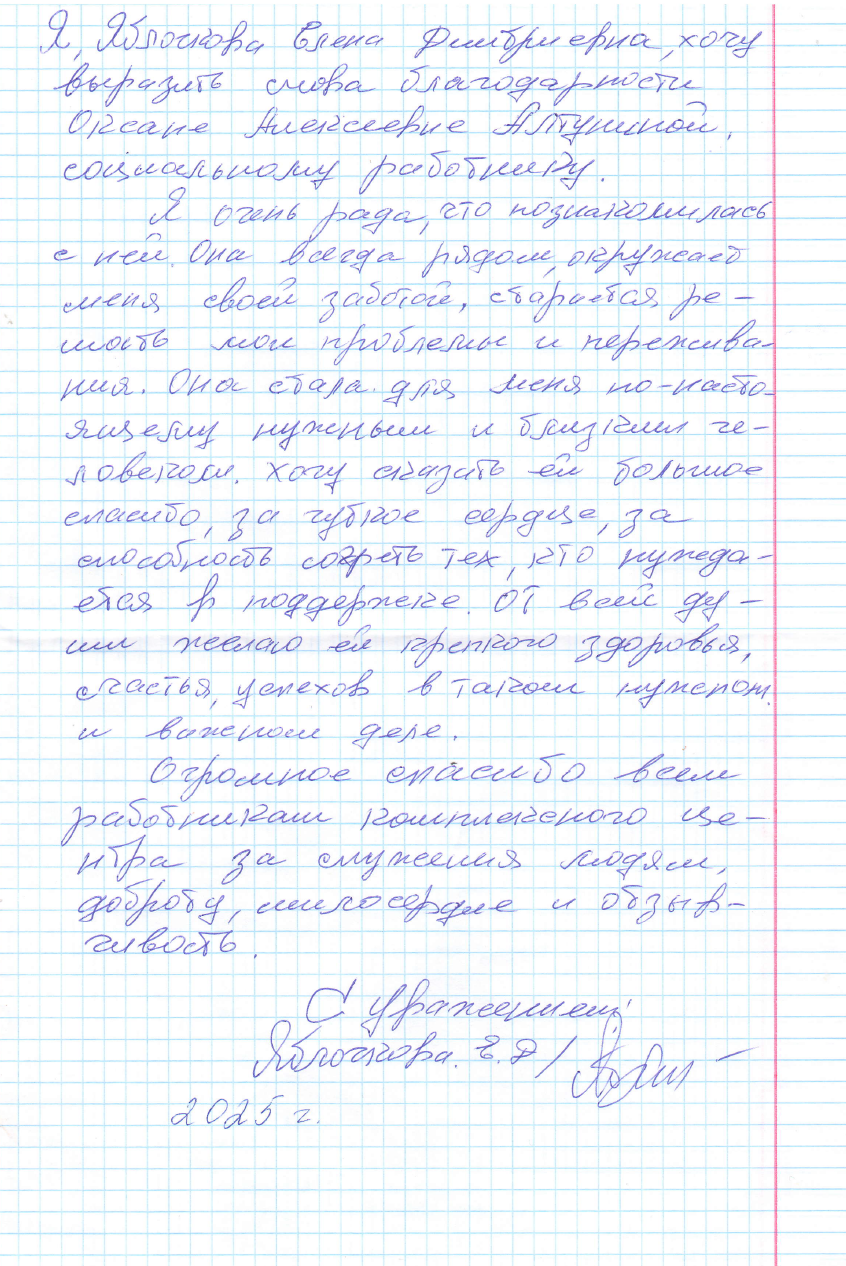 Я, Яблочкова Елена Дмитриевна, хочу
выразить слова благодарности
Оксане Алексеевне Алтушиной,
социальному работнику.
Я очень рада, что познакомилась
с ней. Она всегда рядом, окружает
меня своей заботой, старается ре-
шать мои проблемы и пережива-
ния. Она стала для меня по-насто-
ящему нужным и близким че-
ловеком. Хочу сказать ей большое
спасибо, за чуткое сердце, за
способность согреть тех, кто нужда-
ется в поддержке. От всей ду-
ши желаю ей крепкого здоровья,
счастья, успехов в таком нужном
и важном деле.
Огромное спасибо всем
работникам комплексного це-
нтра за служения людям,
доброту, милосердие и отзыв-
чивость.
С уважением
Яблочкова. Е. Д /
2025 г.